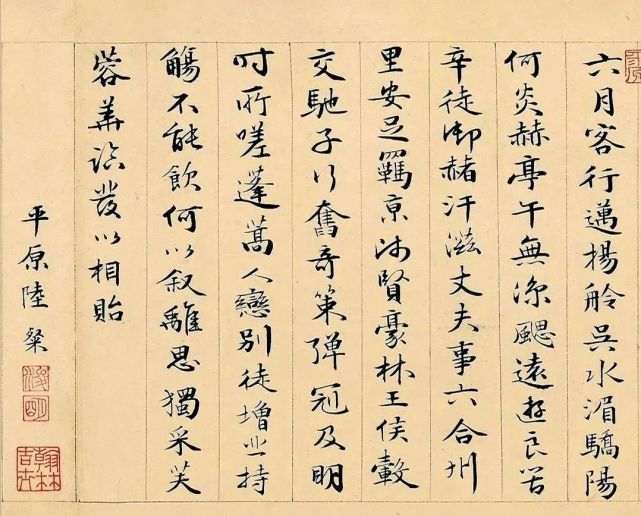 六月客行邁揚舲吳水湄驕陽
何炎赫亭午無涼颸遠遊良苦
辛徒御赭汗滋丈夫事六合州
里安足羈京洛賢豪林王侯轂
交馳子行奮奇策彈冠及明
時所嗟蓬蒿人戀別徒增悲持
觴不能飲何以叙離思獨采芙
蓉華臨發以相貽
平原陸粲
浚明
翰林吉士